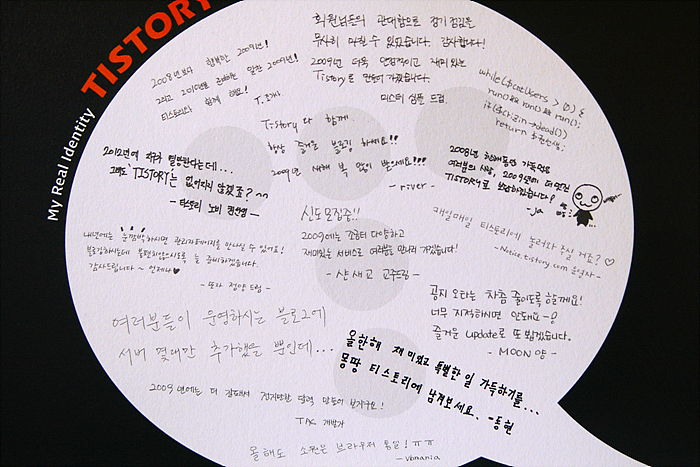 My Real Identity TISTORY
회원님들의 관대함으로 정기점검을
무사히 마칠 수 있었습니다. 감사합니다!
2009년 더욱 안정적이고 재미있는
Tistory로 만들어 가겠습니다.
미스테 심플 드림.
2008년보다 행복한 2009년!
그리고 2010년을 준비하는 알찬 2009년!
티스토리와 함께 해요!
while($catUsers > 0) {
run() && run() && run();
if($chizin->dead())
return $
Tistory와 함께
항상 즐거운 블로깅 하세요!!
2009년 새해 복 많이 받으세요!!!
- river -
2012년에 지구가 멸망한다는데...
그래도 'TISTORY'는 없어지지 않겠죠? ^^
- 티스토리 노비
2008년 한해동안 가득했던
여러분의 사랑, 2009년에 더 멋진
TISTORY로 보답하겠습니다!
- ja
신도모집중!!
2009에는 조금더 다양하고
재미있는 서비스로 여러분을 만나러 가겠습니다!
- 샨새교 교주드림 -
매일매일 티스토리에 놀러와 주실 거죠? ♡
- Notice.tistory.com 운영자 -
내년에는 눈깜빡하시면 관리자페이지를 만나실 수 있어요!
블로깅하시는데 불편하없으시도록 늘 준비하겠습니다.
감사드립니다 ~ 언제나 ♥
- 또자 정양 드림 -
공지 오타는 차츰 줄이도록 할게요!
너무 지적하시면 안돼요
즐거운 update로 또 뵙겠습니다.
- MOON양 -
여러분들이 운영하시는 블로그에
서버 몇대만 추가했을 뿐인데...
올한해 재미있고 특별한 일 가득하기를...
몽땅 티스토리에 남겨보세요. -동현
2009년에는 더 잘해서 전지만한 달력 만들어 보자구요!
TAG 개발자
올해도 소원은 브라우저 통일! ㅠㅠ
- vbmania